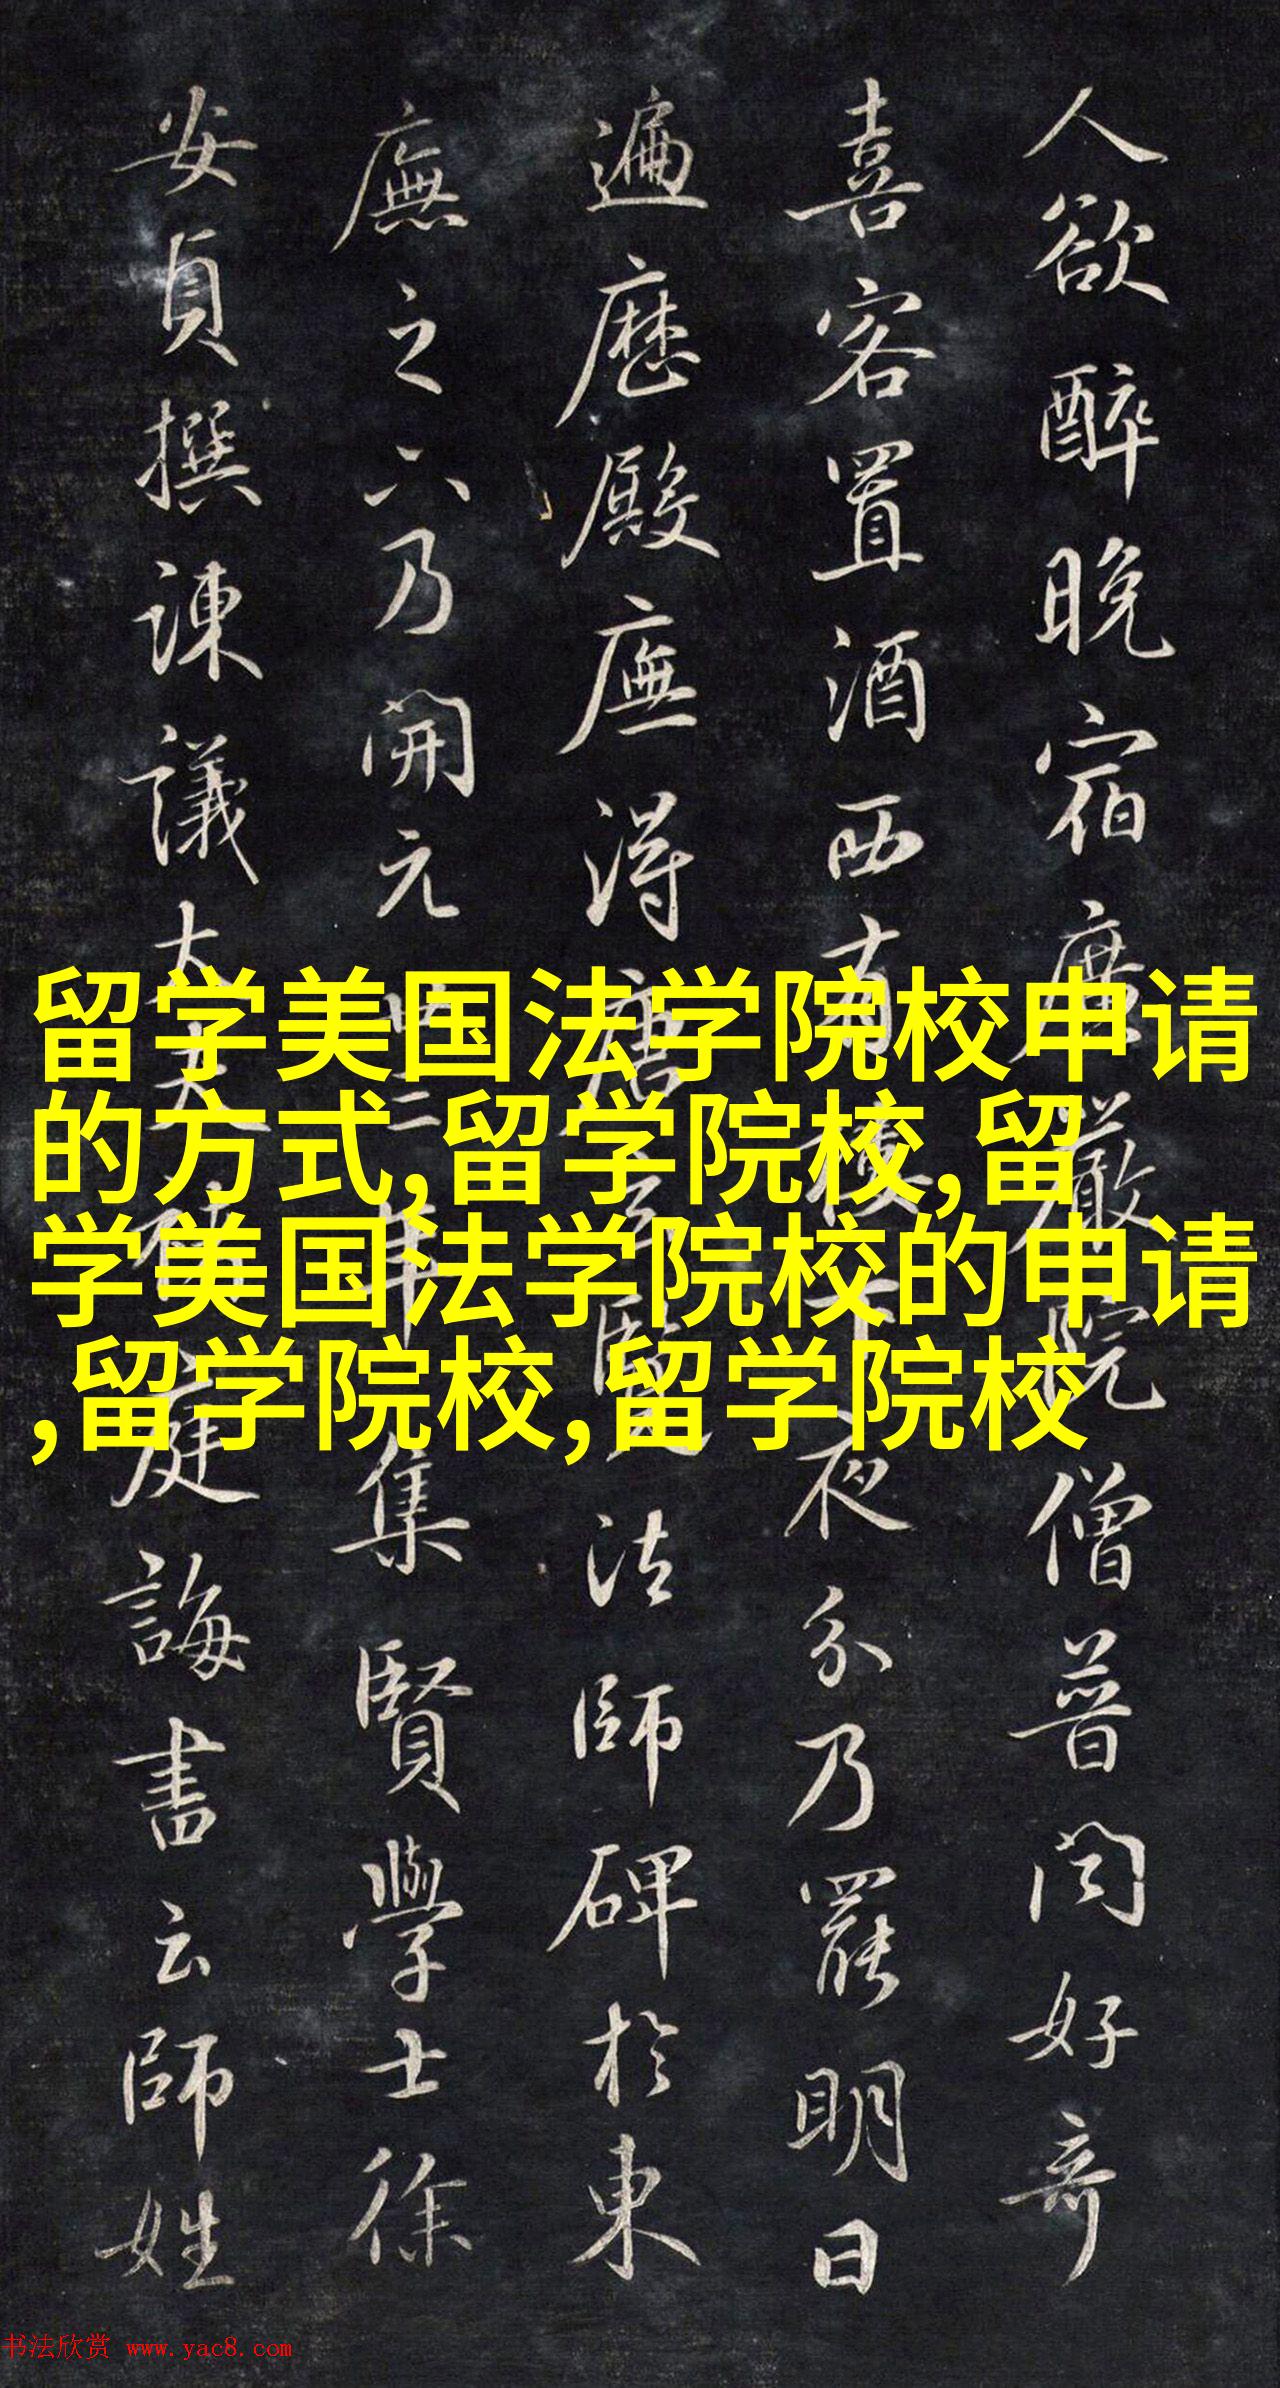 人欲醉晚宿廣嚴院僧普聞好奇
喜客置酒西南樓下夜分乃罷明日
遍歷殿廡得唐玄覽法師碑於東
廡之下乃開元廿二年集賢學士徐
安貞撰諫議大夫褚庭誨書云師姓
留学美国法学院校申请
的方式,留学院校,留
学美国法学院校的申请
,留学院校,留学院校
书法欣赏 www.yac8.com